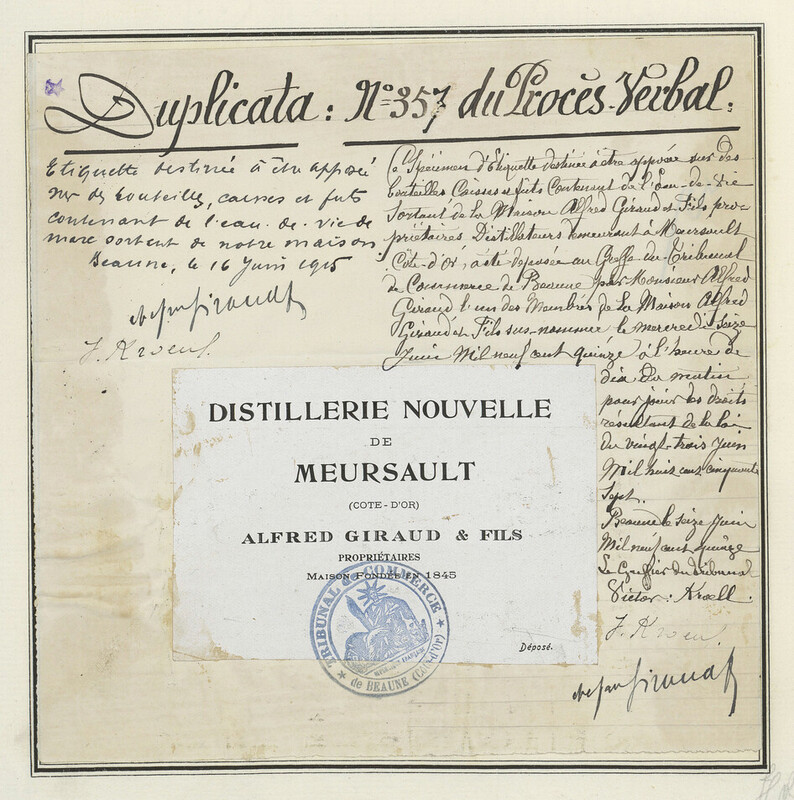 Duplicata: N° 357 du Procès-Verbal.
Etiquette destinée à être apposée
sur des bouteilles, caisses et futs
contenant de l'eau-de-vie de
marc sortent de notre maison
Beaune, le 16 Juin 1915
Giraud
Ce Spécimen d'Etiquette destinée à être apposée sur des
bouteilles Caisses et fûts Contenant de l'Eau-de-Vie
Sortant de la Maison Alfred Giraud et Fils pro
priétaires Distillateurs demeurant à Meursault
Côte-d'Or, a été déposée au Greffe du Tribunal
de Commerce de Beaune par Monsieur Alfred
Giraud l'un des Membres de la Maison Alfred
Giraud et Fils sus-nommée le mercredi seize
Juin Mil neuf cent quinze à l'heure de
dix du matin
pour jouir des droits
résultant de la loi
du vingt-trois Juin
Mil huit cent cinquante
Sept.
Beaune le seize Juin
Mil neuf cent quinze
Le Greffier du Tribunal
Victor: Kroell.
Giraud
DISTILLERIE NOUVELLE
DE
MEURSAULT
(COTE-D'OR)
ALFRED GIRAUD & FILS
PROPRIÉTAIRES
MAISON FONDÉE EN 1845
Déposé.
TRIBUNAL de COMMERCE
de BEAUNE (CÔTE D'OR)